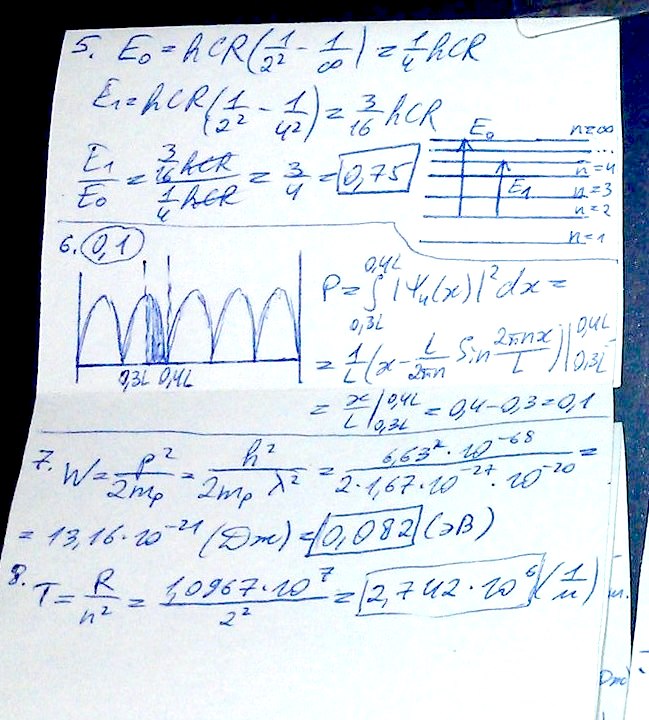 5. E₀ = hCR(1/2² - 1/∞) = 1/4 hCR
E₁ = hCR(1/2² - 1/4²) = 3/16 hCR
E₁/E₀ = (3/16 hCR)/(1/4 hCR) = 3/4 = 0,75
E₀ n=∞
...
n=4
E₁ n=3
n=2
n=1
6. 0,1
0,3L 0,4L
P = ∫_{0,3L}^{0,4L} |Ψₙ(x)|² dx =
= 1/L (x - L/2πn Sin 2πnx/L)|_{0,3L}^{0,4L}
= x/L |_{0,3L}^{0,4L} = 0,4 - 0,3 = 0,1
7. W = p²/2mₚ = h²/2mₚλ² = 6,63²·10⁻⁶⁸/2·1,67·10⁻²⁷·10⁻²⁰ =
= 13,16·10⁻²¹ (Дж) = 0,082 (эВ)
8. T = R/n² = 1,0967·10⁷/2² = 2,742·10⁶ (1/м)